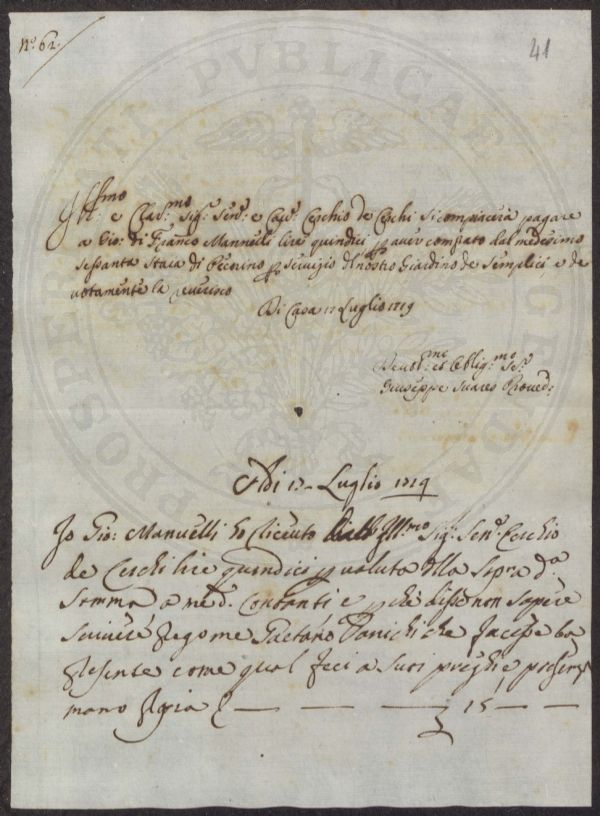 N.º 62.
41
Ill.mo e Clar.mo Sig.r Sen.re e Cav.re Cerchio de Cerchi si compiacerà pagare
a Gio: di Franco Mannelli lire quindici p aver comprato dal medesimo
sessanta staia di Pecorino p servizio del nostro Giardino de Semplici e de
votamente la reverisco
Di Casa 17 Luglio 1719
Devot.mo et Oblig.mo Se.re
Giuseppe Suares Proved.
Adi 17 Luglio 1719
Io Gio: Mannelli ho riceuto dall Ill.mo Sig.r Sen.re Cerchio
de Cerchi lire quindici p valuta della sopra d.a
somma a me d. contanti e p che disse non sapere
scrivere pregò me Gaetano che facesse la
presente come qual feci a suoi preghi e presenza
mano propria £ — — — — 15 — —
PROSPERITATI PUBLICAE AUGENDAE